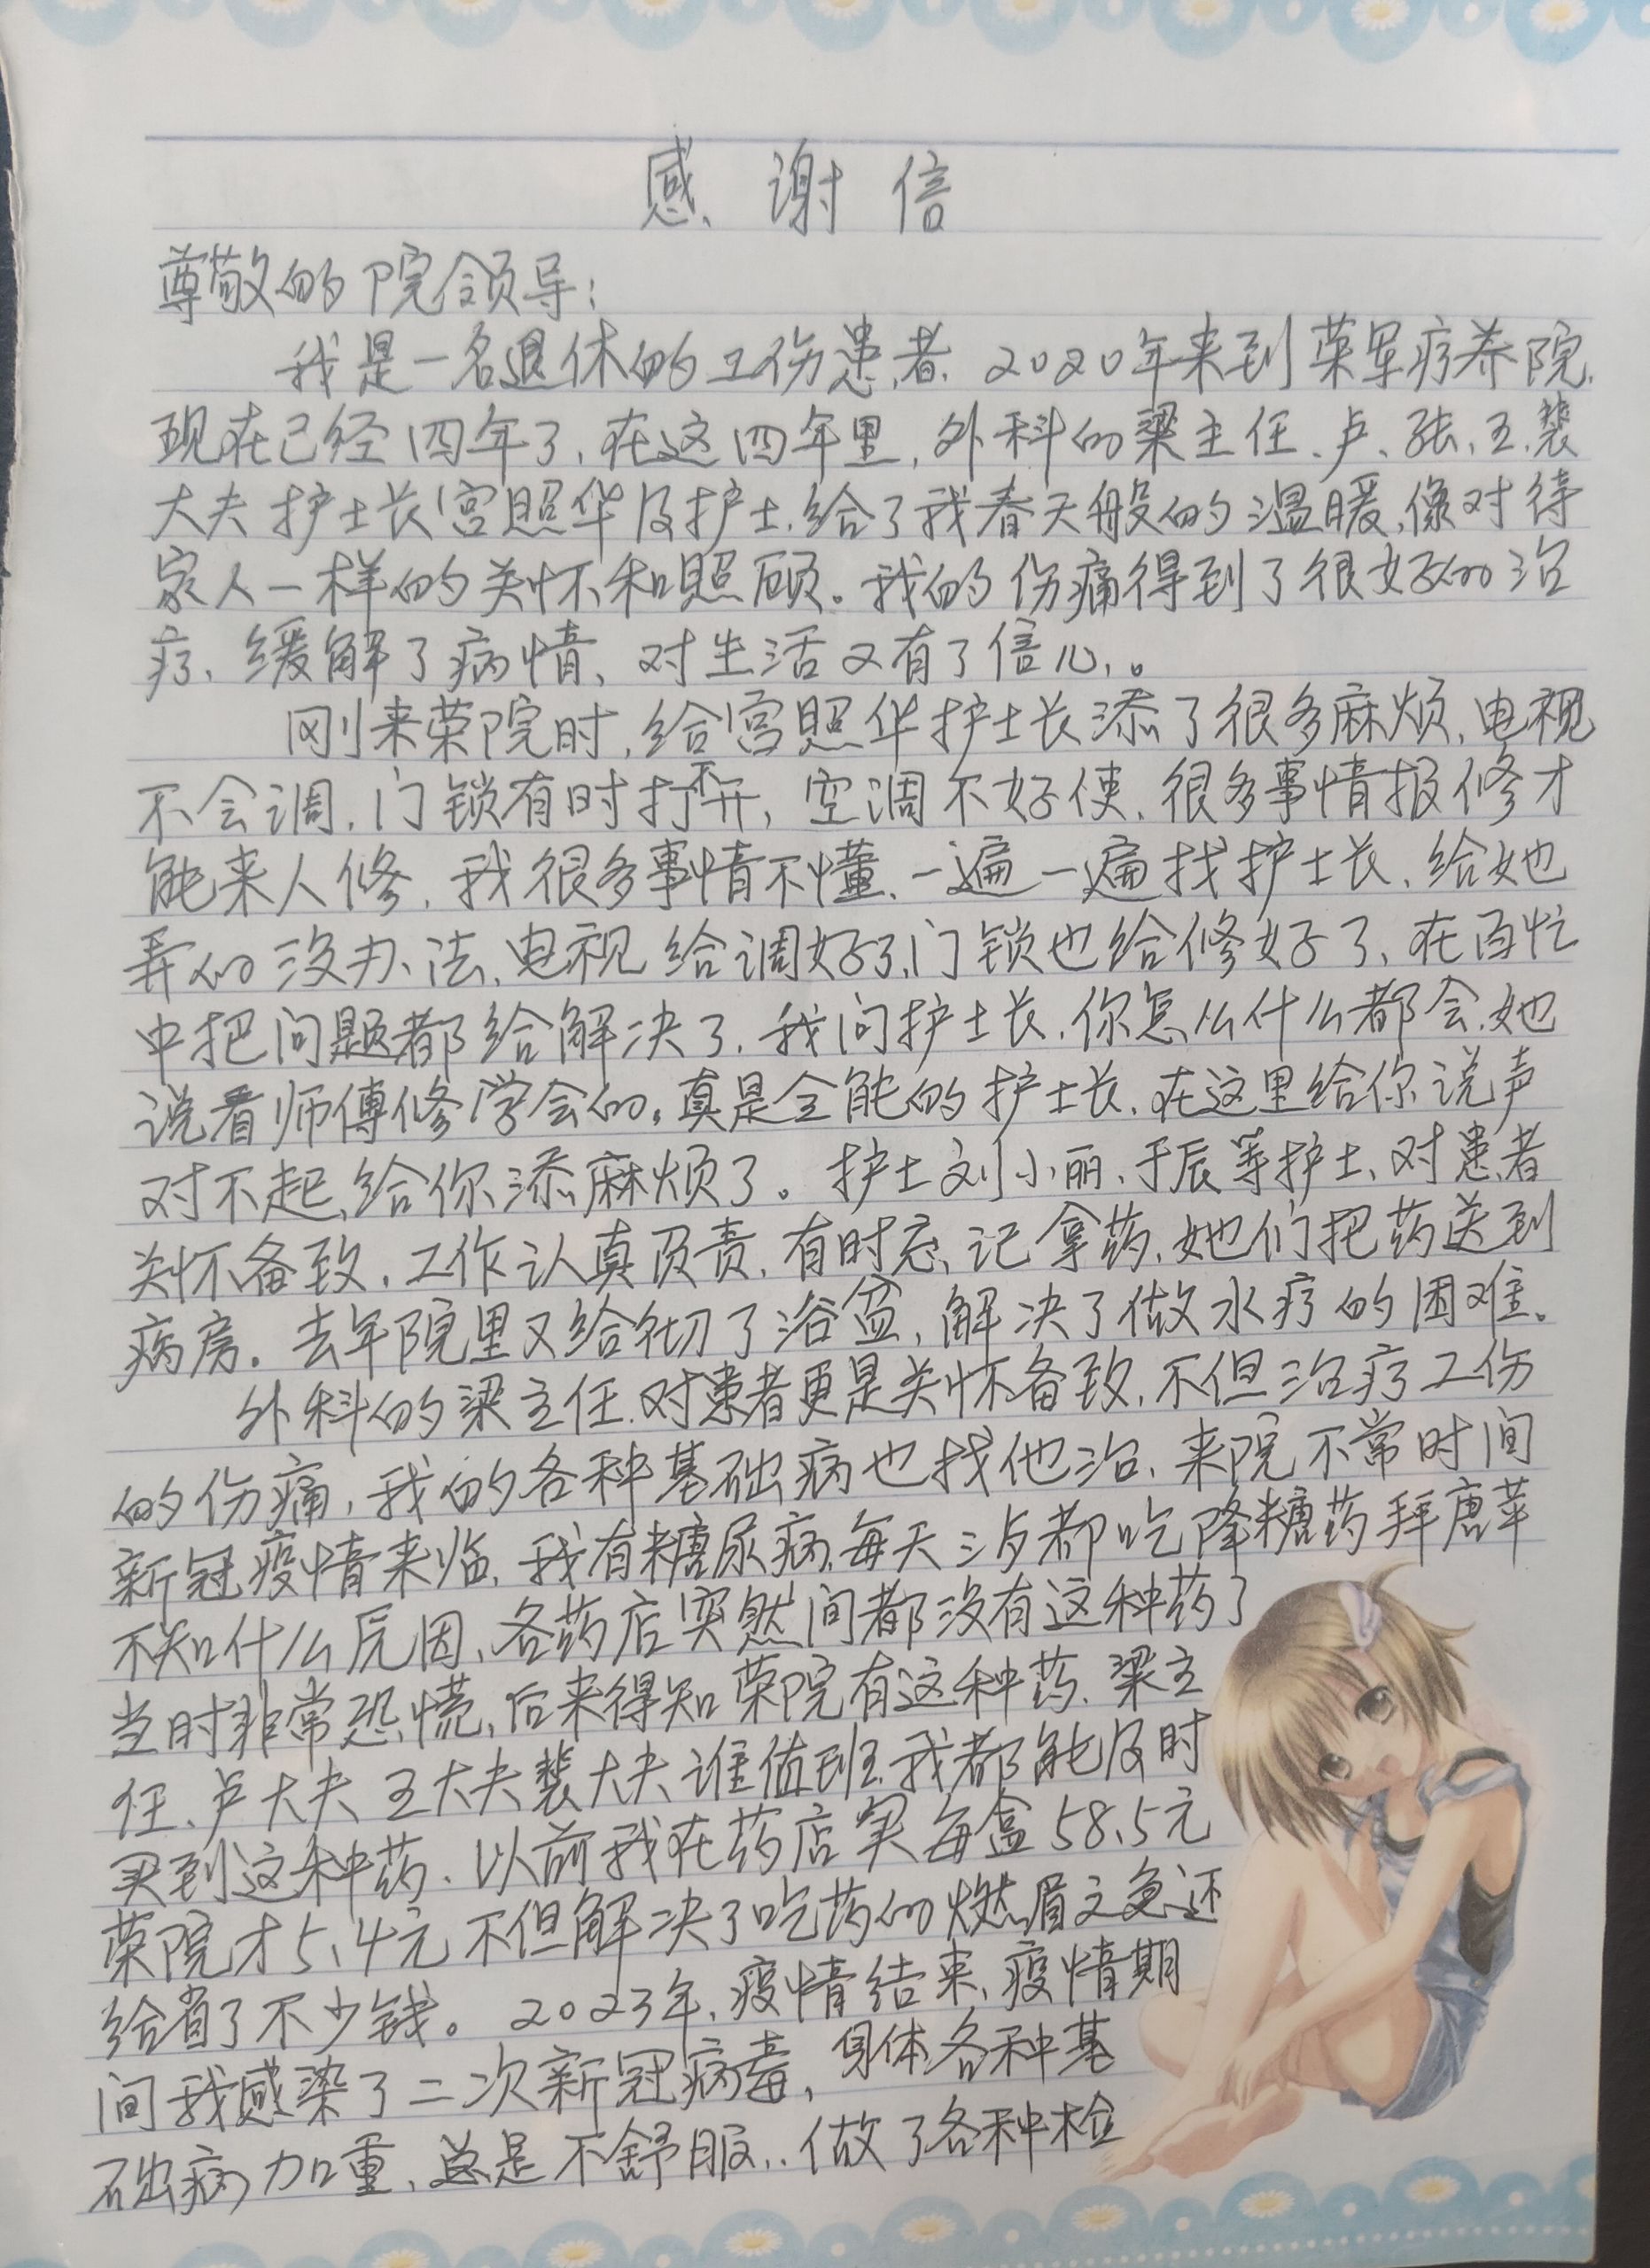 感谢信
尊敬的院领导：
我是一名退休的工伤患者、2020年来到荣军疗养院、
现在已经四年了、在这四年里，外科的梁主任、卢、张、王、裴
大夫护士长宫照华及护士、给了我春天般的温暖、像对待
家人一样的关怀和照顾。我的伤痛得到了很好的治
疗、缓解了病情、对生活又有了信心。
刚来荣院时，给宫照华护士长添了很多麻烦、电视
不会调、门锁有时打不开，空调不好使、很多事情报修才
能来人修、我很多事情不懂、一遍一遍找护士长、给她
弄的没办法、电视给调好了、门锁也给修好了、在百忙
中把问题都给解决了、我问护士长、你怎么什么都会、她
说看师傅修学会的。真是全能的护士长、在这里给你说声
对不起、给你添麻烦了。护士刘小丽、于辰等护士、对患者
关怀备致、工作认真负责、有时忘记拿药、她们把药送到
病房。去年院里又给砌了浴盆、解决了做水疗的困难。
外科的梁主任、对患者更是关怀备致、不但治疗工伤
的伤痛，我的各种基础病也找他治、来院不常时间
新冠疫情来临、我有糖尿病、每天三次都吃降糖药拜唐苹
不知什么原因、各药店突然间都没有这种药了
当时非常恐慌、后来得知荣院有这种药、梁主
任、卢大夫 王大夫裴大夫谁值班、我都能及时
买到这种药、以前我在药店买每盒58.5元
荣院才5.4元不但解决了吃药的燃眉之急还
给省了不少钱。2023年、疫情结束、疫情期
间我感染了二次新冠病毒，身体各种基
础病加重、总是不舒服、做了各种检